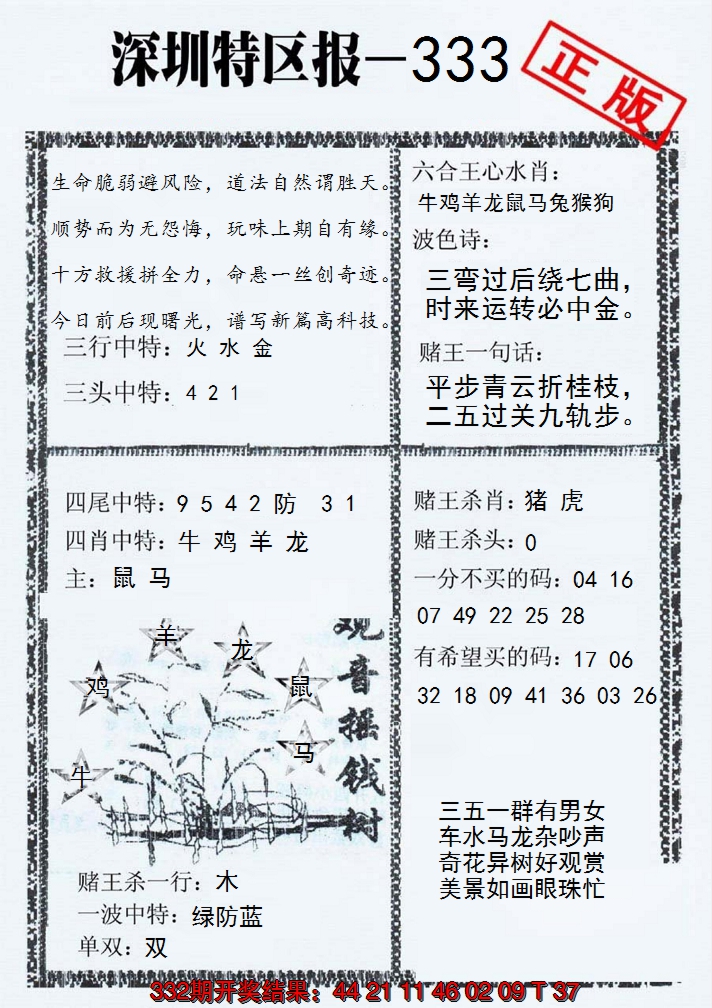 深圳特区报—333
正版
生命脆弱避风险，道法自然谓胜天。
顺势而为无怨悔，玩味上期自有缘。
十方救援拼全力，命悬一丝创奇迹。
今日前后现曙光，谱写新篇高科技。
三行中特：火 水 金
三头中特：4 2 1
六合王心水肖：
牛鸡羊龙鼠马兔猴狗
波色诗：
三弯过后绕七曲，
时来运转必中金。
赌王一句话：
平步青云折桂枝，
二五过关九轨步。
四尾中特：9 5 4 2 防 3 1
四肖中特：牛 鸡 羊 龙
主：鼠 马
羊
龙
鸡
鼠
马
牛
观音摇钱树
赌王杀一行：木
一波中特：绿防蓝
单双：双
赌王杀肖：猪 虎
赌王杀头：0
一分不买的码：04 16
07 49 22 25 28
有希望买的码：17 06
32 18 09 41 36 03 26
三五一群有男女
车水马龙杂吵声
奇花异树好观赏
美景如画眼珠忙
332期开奖结果：44 21 11 46 02 09 T 37